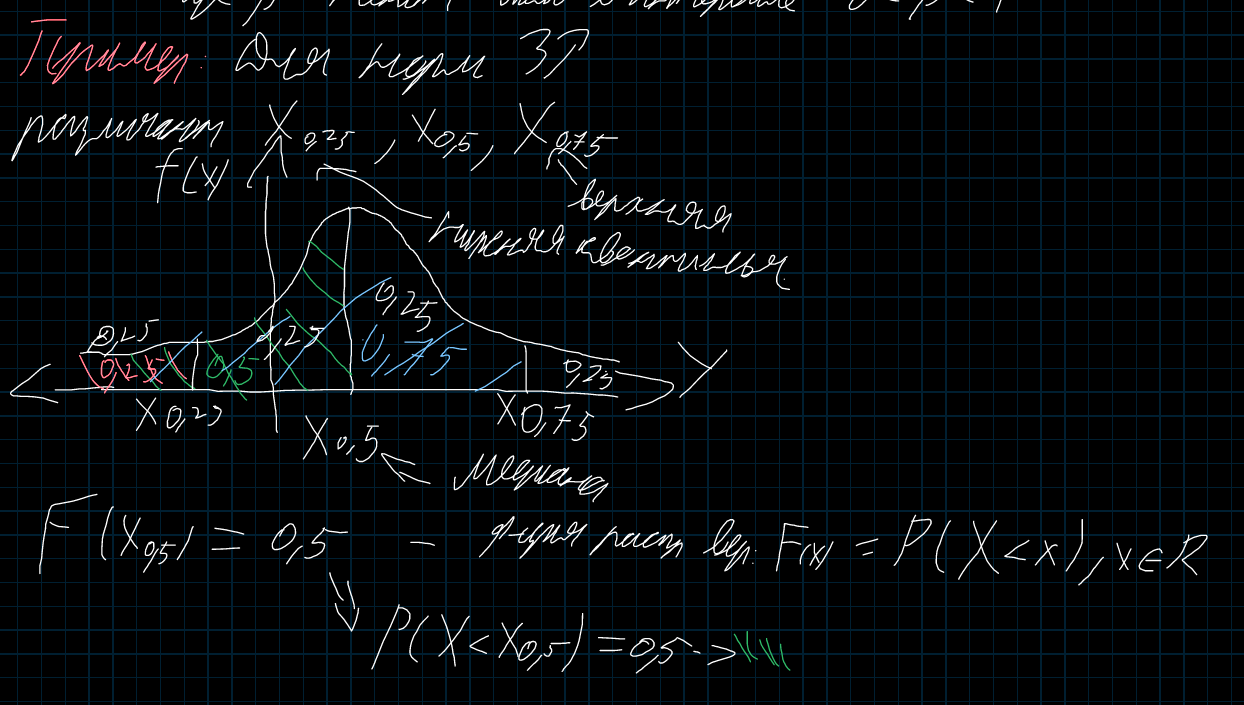 Пример: Для норм ЗР
различают X0,25 , X0,5, X0,75
f(x)
верхняя
нижняя квантиль
0,25
0,25 0,25
0,25 0,5 0,75 0,25
X0,25 X0,5 X0,75
медиана
F(X0,5) = 0,5 - ф-ция расп вер: F(x) = P(X<x), x∈R
P(X<X0,5) = 0,5 ->